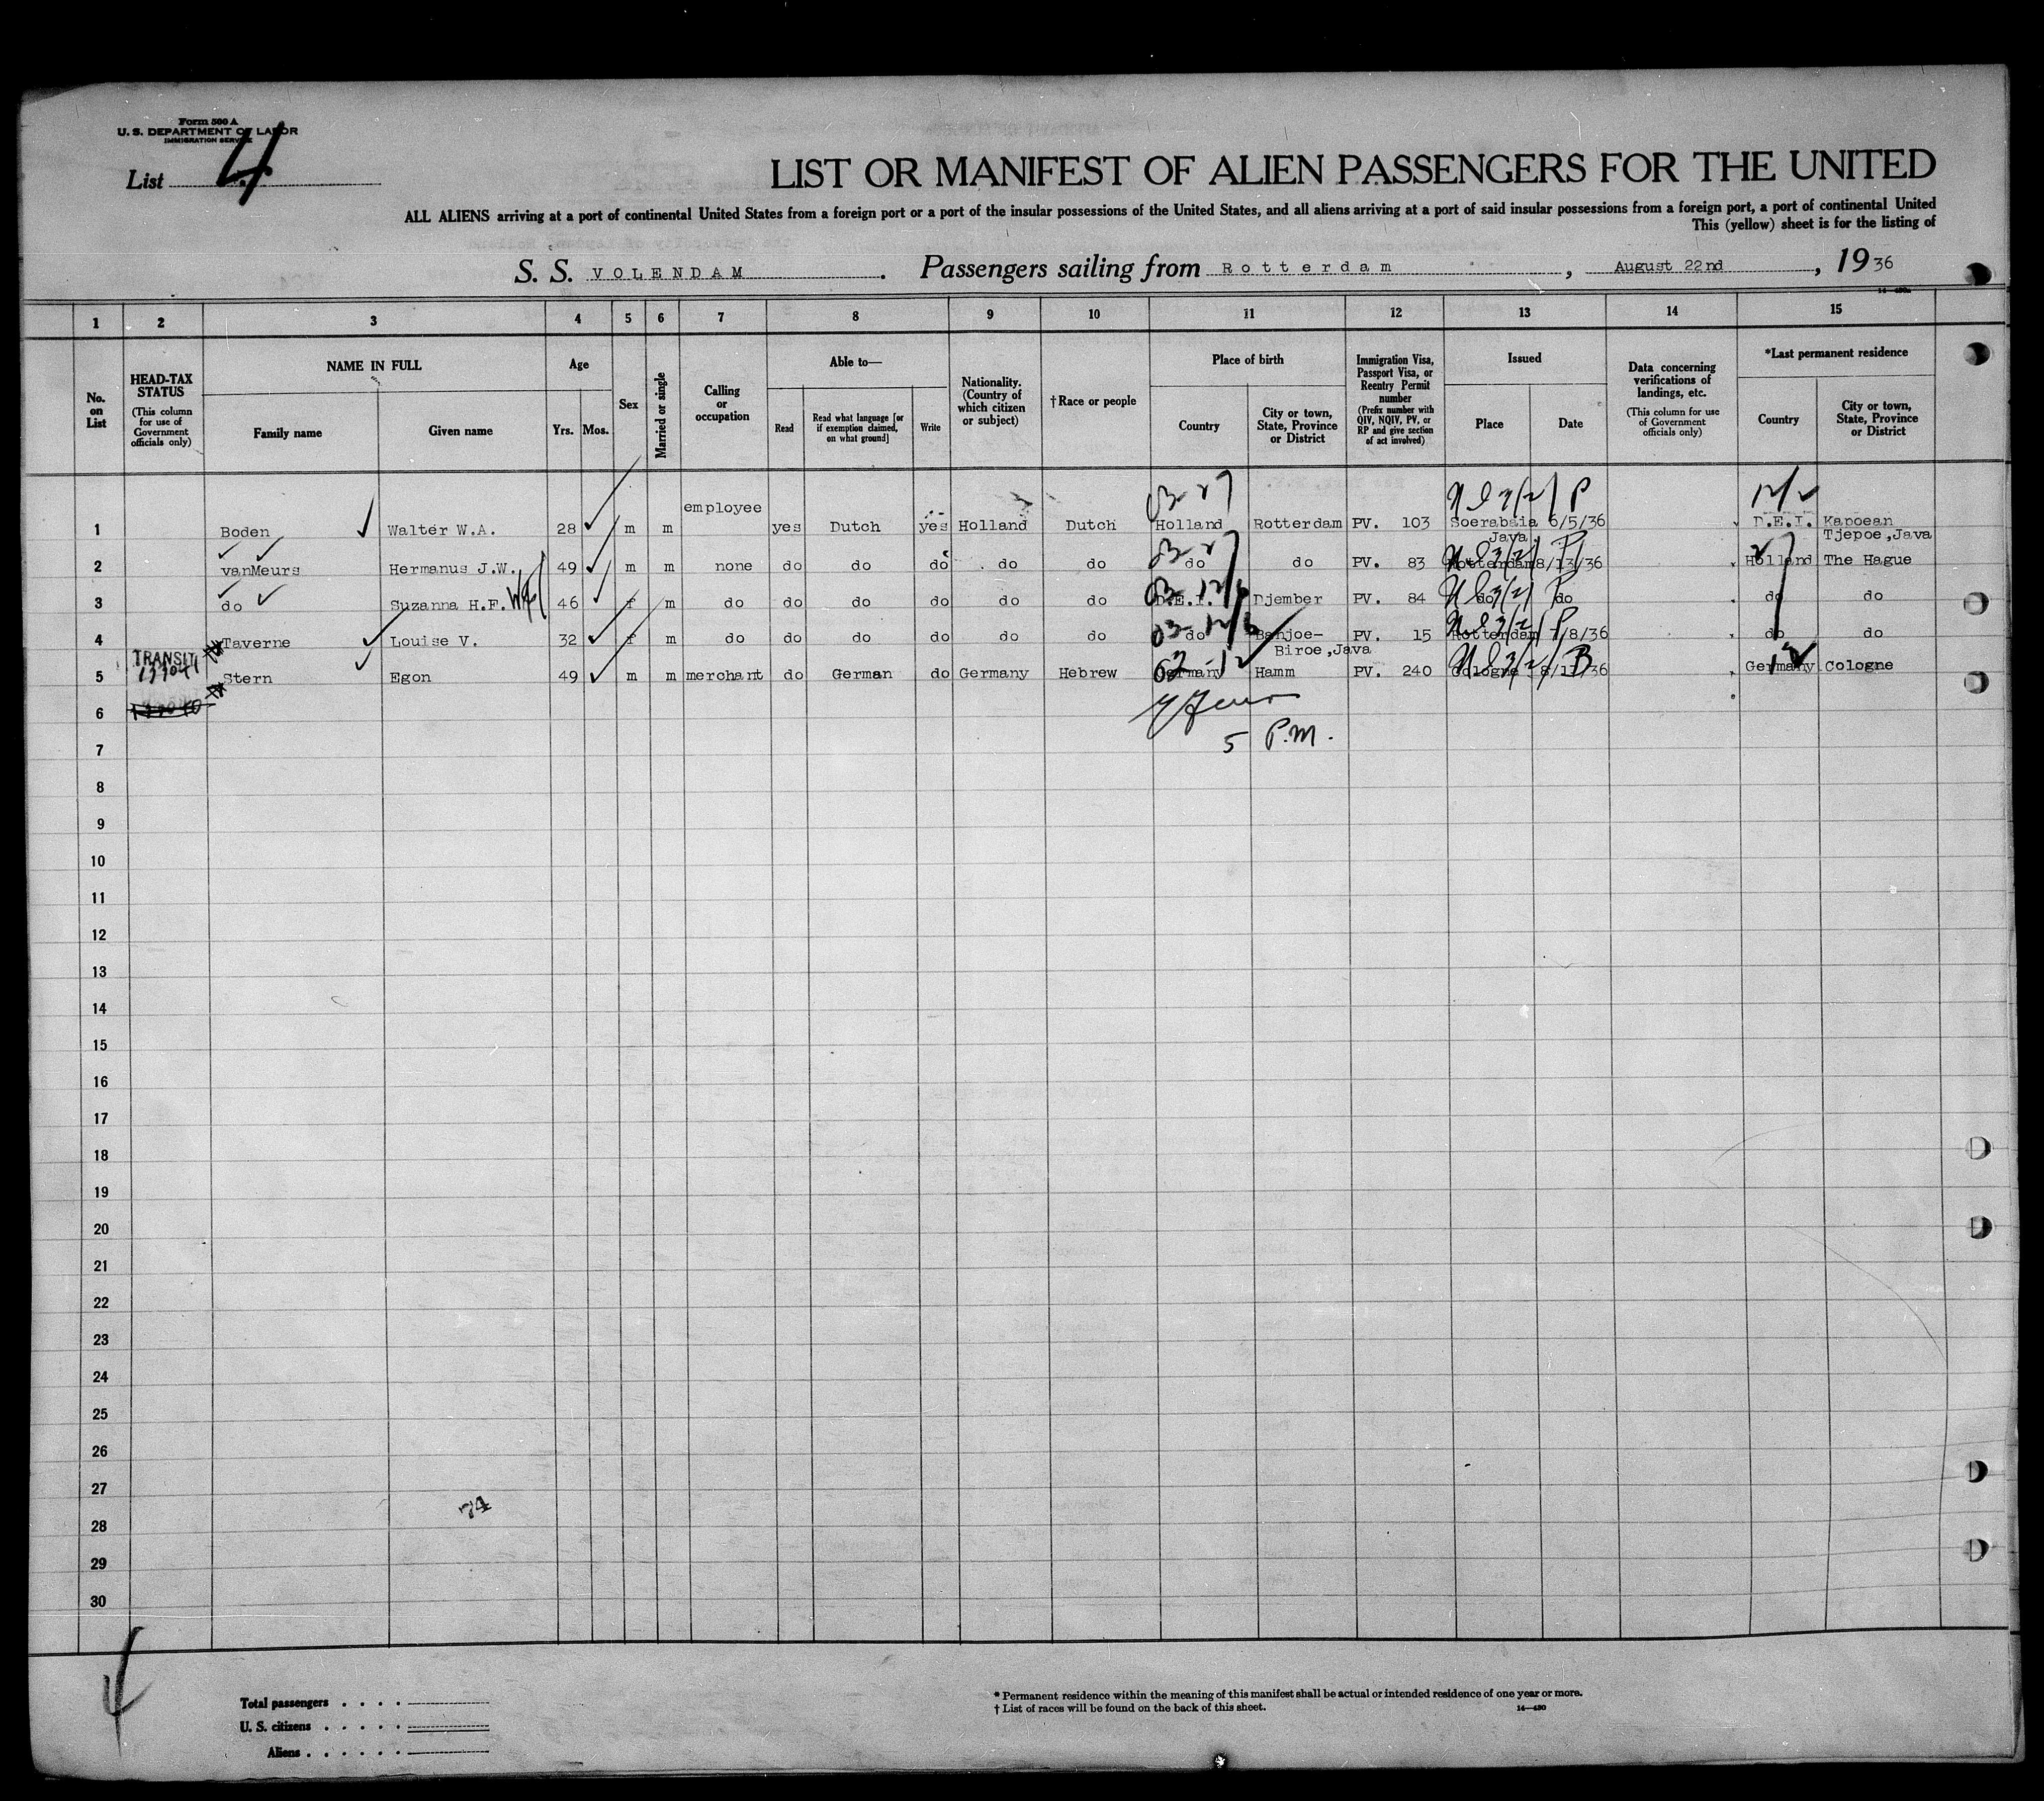 Form 500 A
U. S. DEPARTMENT OF LABOR
IMMIGRATION SERVICE
List 4
LIST OR MANIFEST OF ALIEN PASSENGERS FOR THE UNITED
ALL ALIENS arriving at a port of continental United States from a foreign port or a port of the insular possessions of the United States, and all aliens arriving at a port of said insular possessions from a foreign port, a port of continental United
This (yellow) sheet is for the listing of
S. S. VOLENDAM. Passengers sailing from Rotterdam, August 22nd, 1936
1 2 3 4 5 6 7 8 9 10 11 12 13 14 15
No. on List
HEAD-TAX STATUS
(This column for use of Government officials only)
NAME IN FULL
Family name Given name
Age
Yrs. Mos.
Sex
Married or single
Calling or occupation
Able to—
Read
Read what language [or if exemption claimed, on what ground]
Write
Nationality. (Country of which citizen or subject)
†Race or people
Place of birth
Country
City or town, State, Province or District
Immigration Visa, Passport Visa, or Reentry Permit number
(Prefix number with QIV, NQIV, PV, or RP and give section of act involved)
Issued
Place Date
Data concerning verifications of landings, etc.
(This column for use of Government officials only)
*Last permanent residence
Country
City or town, State, Province or District
1 Boden Walter W.A. 28 m m employee yes Dutch yes Holland Dutch Holland Rotterdam PV. 103 Soerabaia Java 6/5/36 D.E.I. Kapoean Tjepoe,Java
2 vanMeurs Hermanus J.W. 49 m m none do do do do do do do PV. 83 Rotterdam 8/13/36 Holland The Hague
3 do Suzanna H.F. Wf 46 f m do do do do do do D.E.I. Djember PV. 84 do do do do
4 Taverne Louise V. 32 f m do do do do do do do Banjoe-Biroe,Java PV. 15 Rotterdam 7/8/36 do do
TRANSIT
133041
5 Stern Egon 49 m m merchant do German do Germany Hebrew Germany Hamm PV. 240 Cologne Germany Cologne
6
5 P.M.
7
8
9
10
11
12
13
14
15
16
17
18
19
20
21
22
23
24
25
26
27
74
28
29
30
4
Total passengers
U. S. citizens
Aliens
* Permanent residence within the meaning of this manifest shall be actual or intended residence of one year or more.
† List of races will be found on the back of this sheet.
14—430